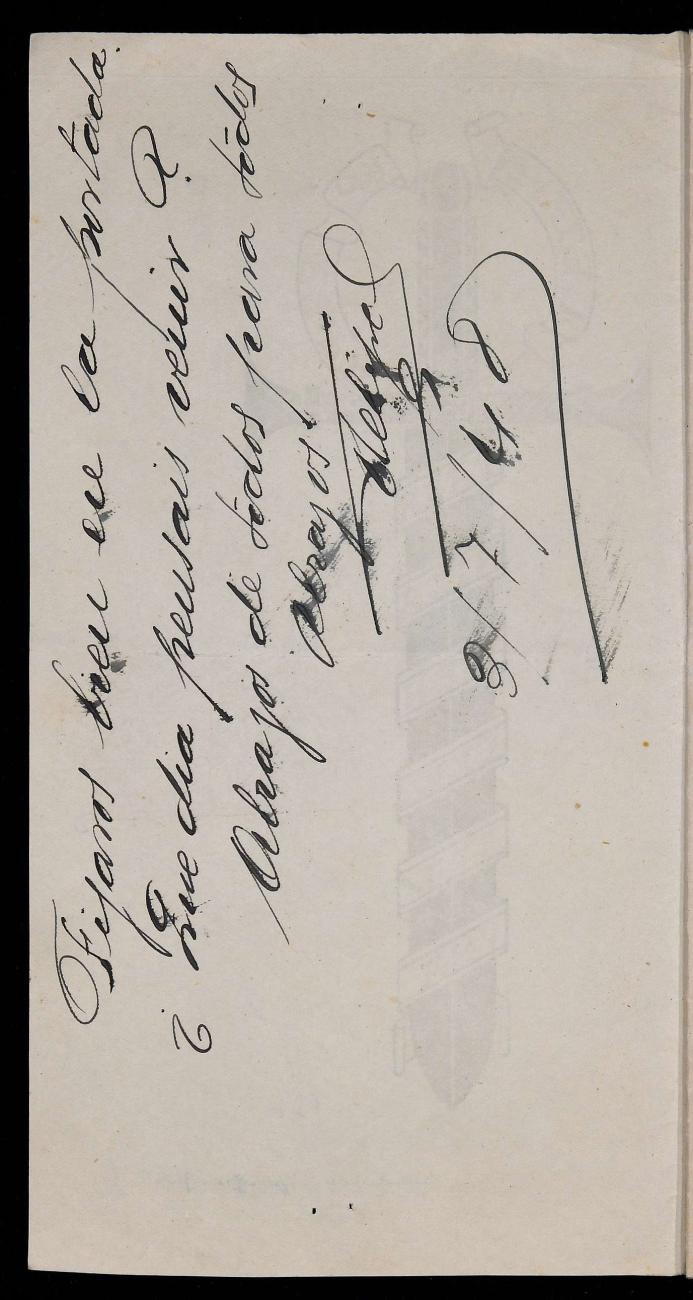 Fijaros bien en la portada.
¿ Que dia pensais venir ?
Abrazos de todos para todos
Abrazos.
Felipe
3/7/48